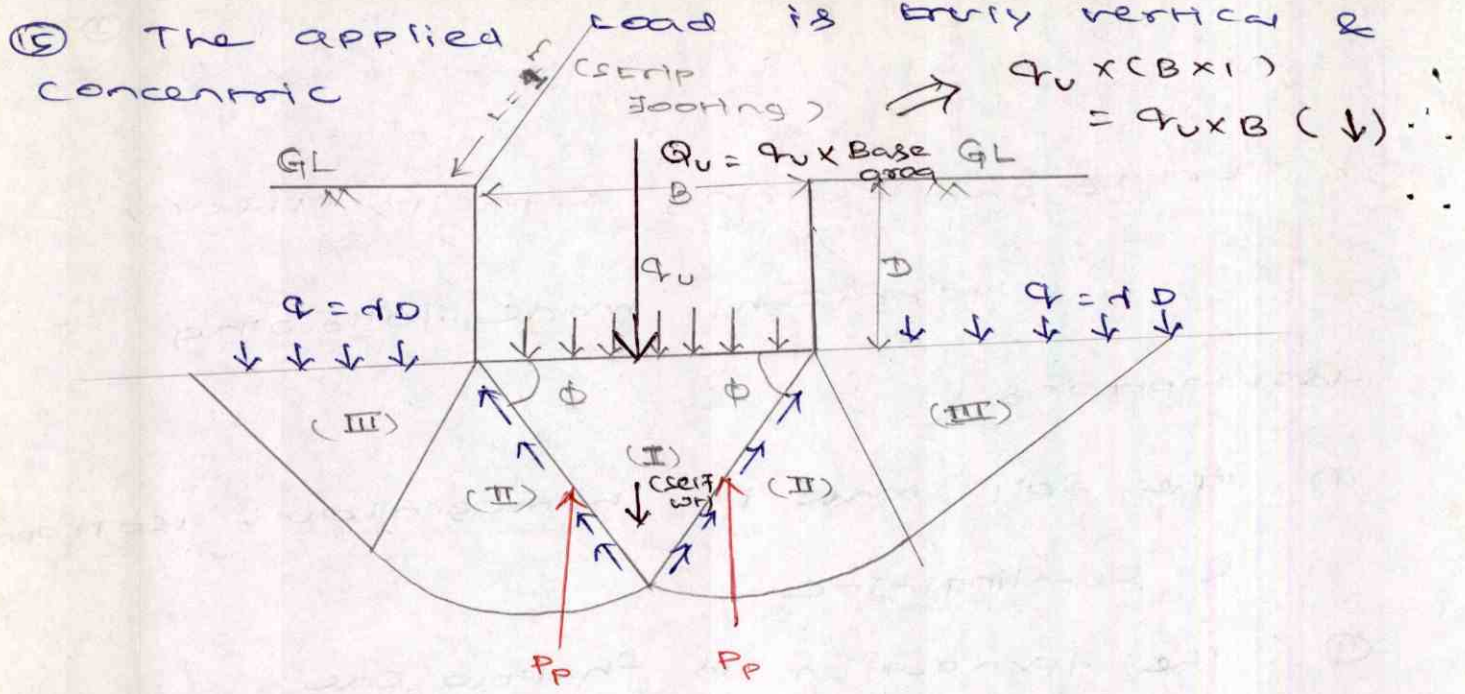 The applied Load is truly vertical &
concentric
(strip
footing)
⇒ qu × (B×1)
= qu × B (↓)
GL
Qu = qu × Base
area
GL
B
qu
D
q = γD
q = γD
φ
φ
(III)
(II)
(I)
(self
wt)
(II)
(III)
Pp
Pp